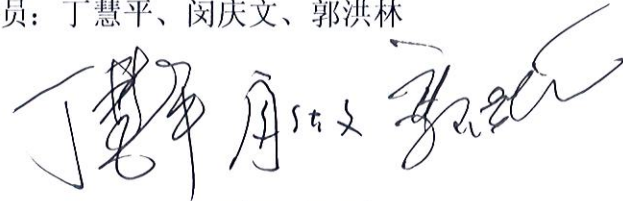 员：丁慧平、闵庆文、郭洪林
丁慧平 闵庆文 郭洪林